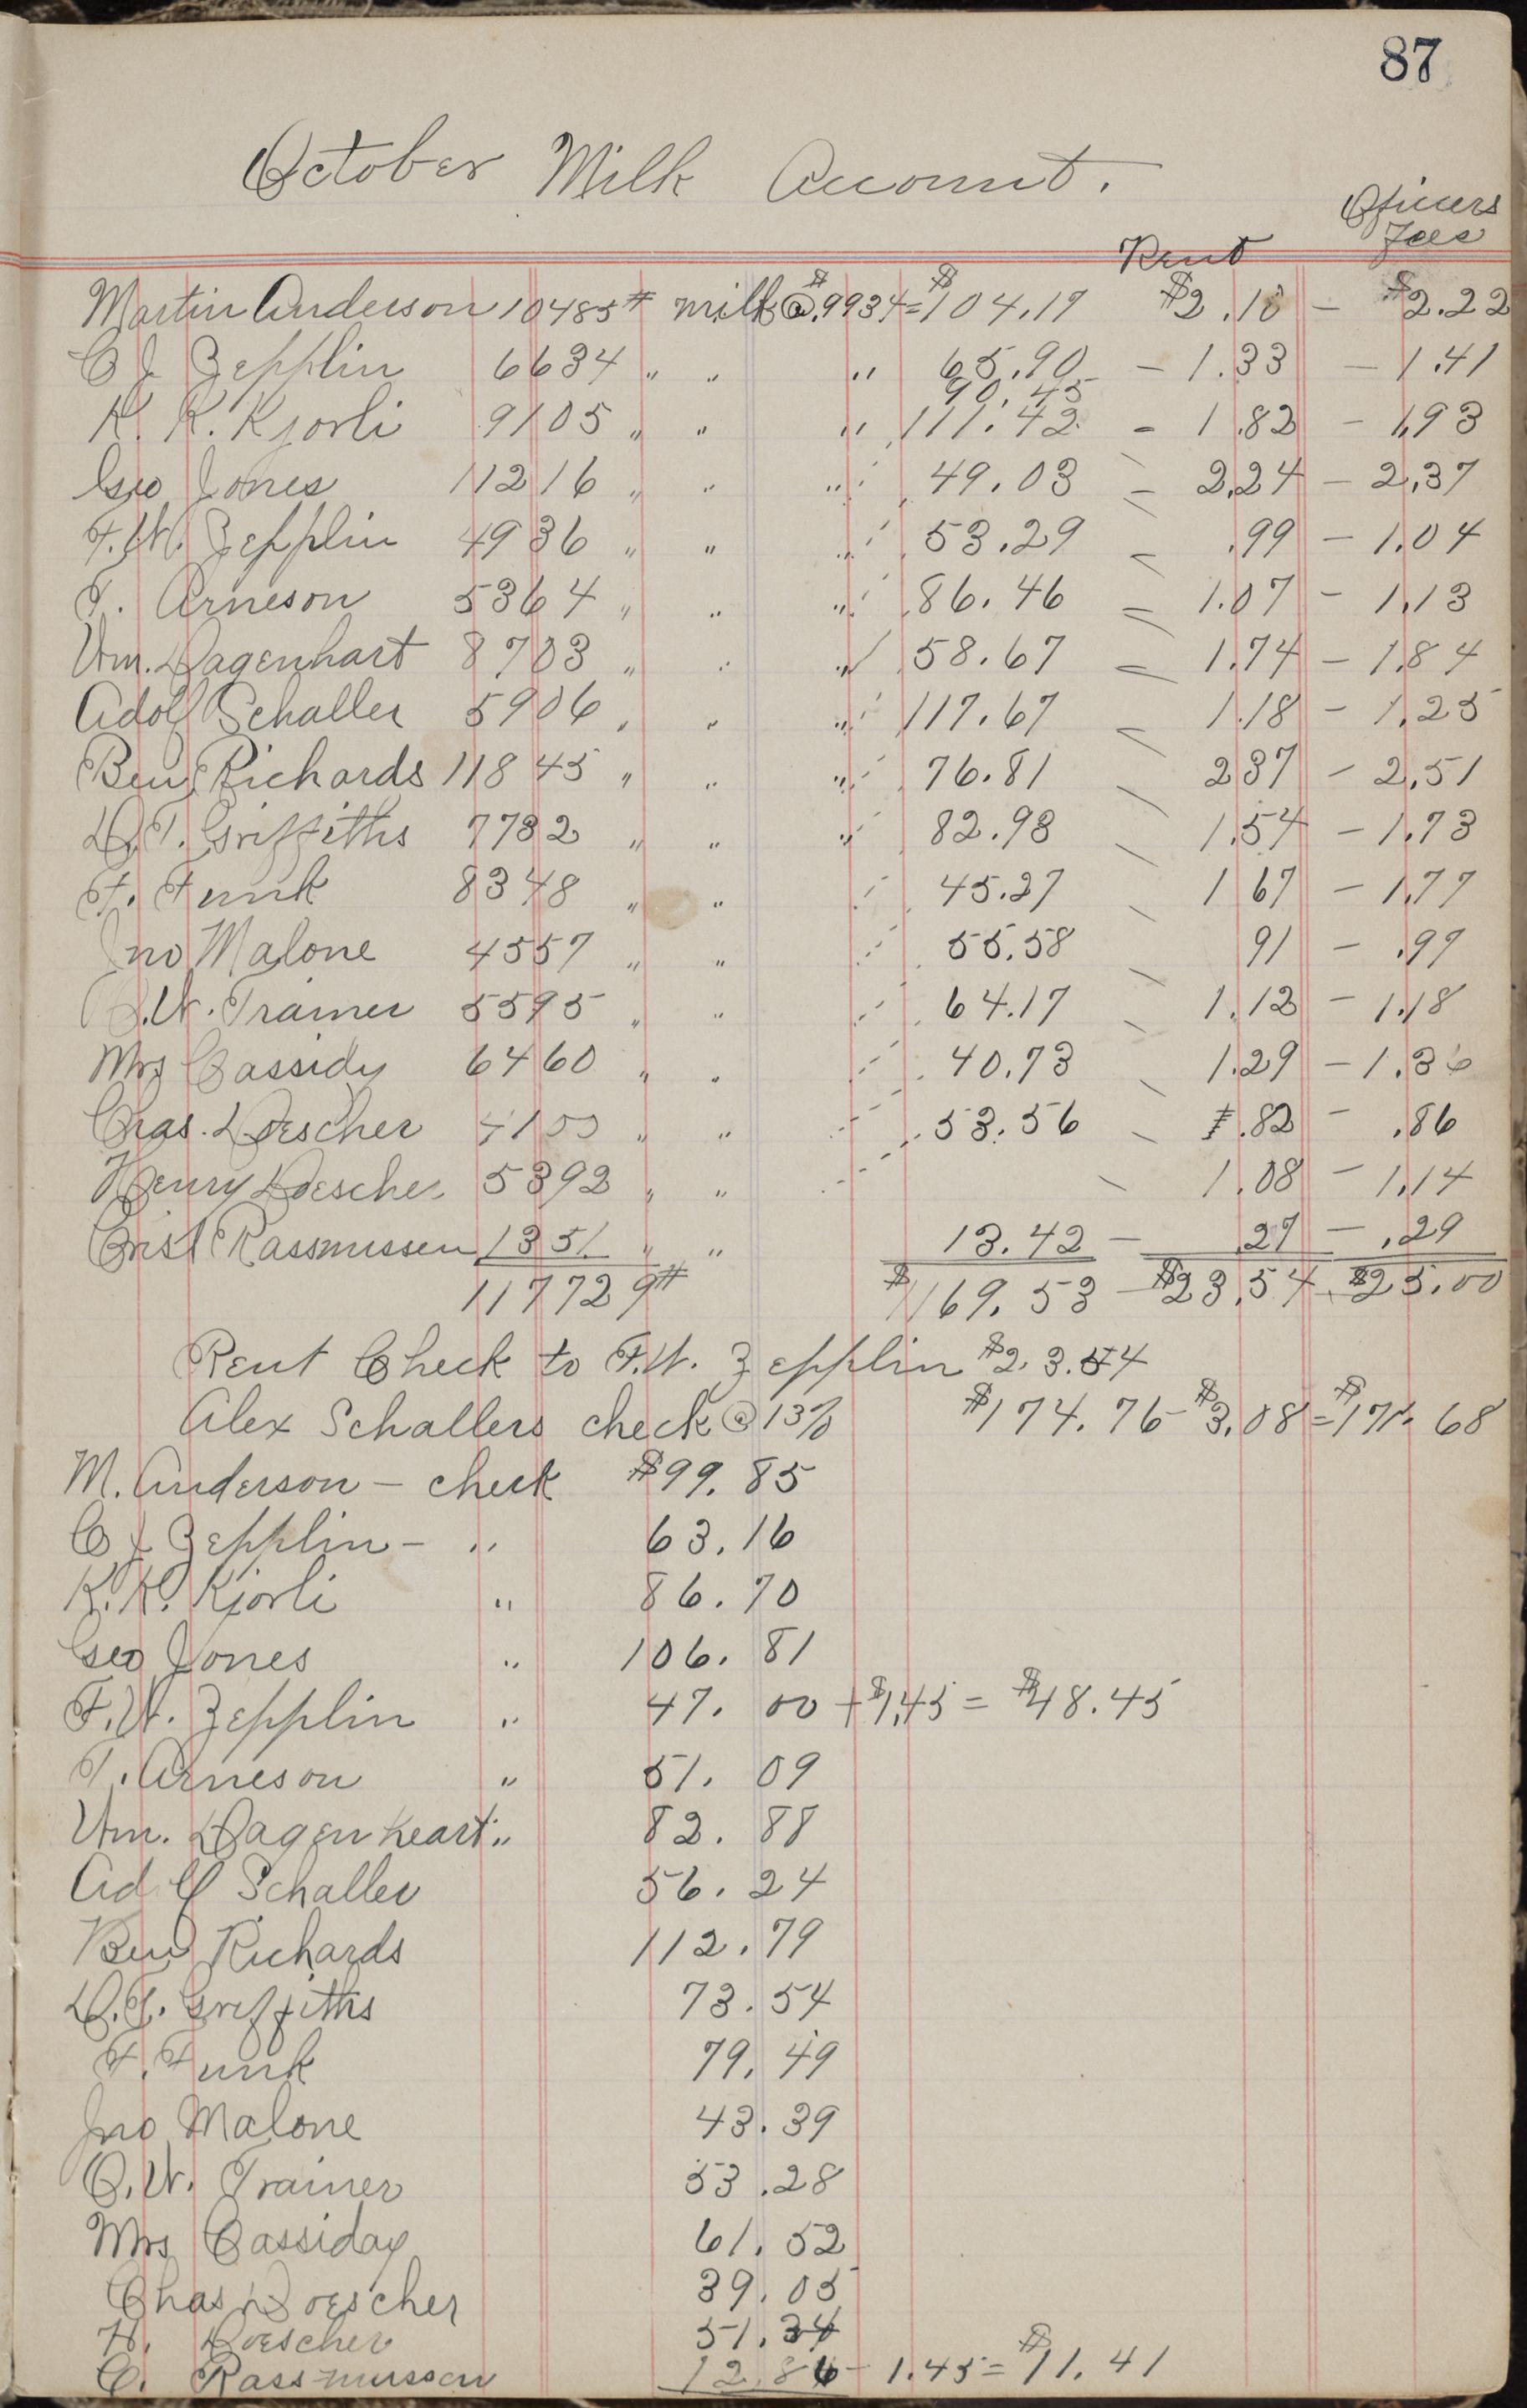 87
October Milk Account.
Rent Officers Fees
Martin Anderson 10485# milk @ $.9934 = $104.17 $2.10 - $2.22
C J Zepplin 6634 " " " 65.90 - 1.33 - 1.41
90.45
K. K. Kjorli 9105 " " " 111.42 - 1.82 - 1.93
Geo Jones 11216 " " " 49.03 - 2.24 - 2.37
F.W. Zepplin 4936 " " " 53.29 - .99 - 1.04
T. Arneson 5364 " " " 86.46 - 1.07 - 1.13
Wm. Dagenhart 8703 " " " 58.67 - 1.74 - 1.84
Adolf Schaller 5906 " " " 117.67 - 1.18 - 1.25
Ben Richards 11845 " " " 76.81 - 2 37 - 2.51
D.T. Griffiths 7732 " " " 82.93 - 1.54 - 1.73
F. Funk 8348 " " 45.27 - 1 67 - 1.77
Jno Malone 4557 " " 55.58 - 91 - .97
O.W. Trainer 5595 " " 64.17 - 1.12 - 1.18
Mrs Cassidy 6460 " " 40.73 - 1.29 - 1.36
Chas. Doescher 4100 " " 53.56 - .82 - .86
Henry Doescher 5392 " " - 1.08 - 1.14
Crist Rassmussen 1351 " " 13.42 - .27 - .29
117729# $1169.53 - $23.54 - $25.00
Rent Check to F.W. Zepplin $23.54
Alex Schallers check @ 13% $174.76 - $3.08 = $171.68
M. Anderson - check $99.85
C J Zepplin - " 63.16
K. K. Kjorli " 86.70
Geo Jones " 106.81
F.W. Zepplin " 47.00 + $1.45 = $48.45
T. Arneson " 51.09
Wm. Dagenheart " 82.88
Adolf Schaller 56.24
Ben Richards 112.79
D.T. Griffiths 73.54
F. Funk 79.49
Jno Malone 43.39
O.W. Trainer 53.28
Mrs Cassiday 61.52
Chas Doescher 39.05
H. Doescher 51.34
C. Rassmussen 12.86 - 1.45 = $11.41